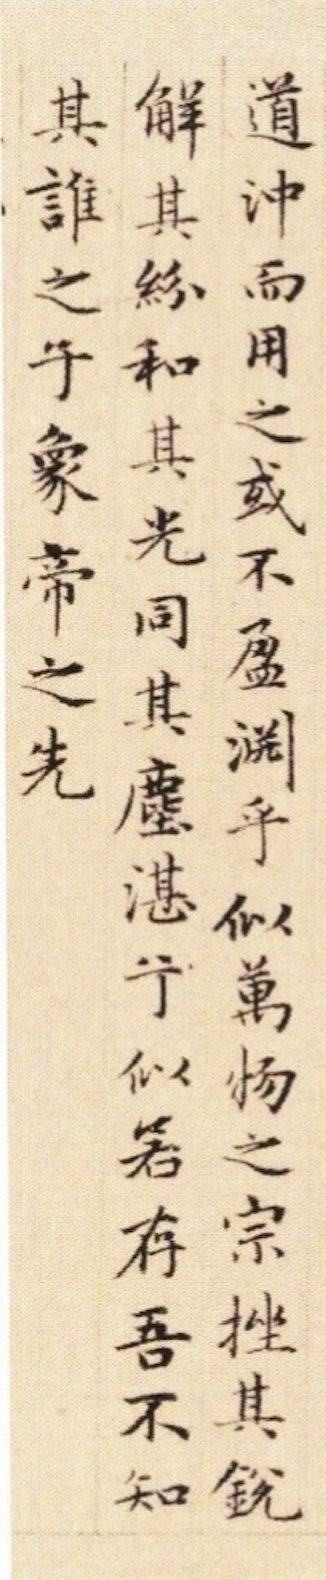 道沖而用之或不盈淵乎似萬物之宗挫其銳
解其紛和其光同其塵湛兮似若存吾不知
其誰之子象帝之先